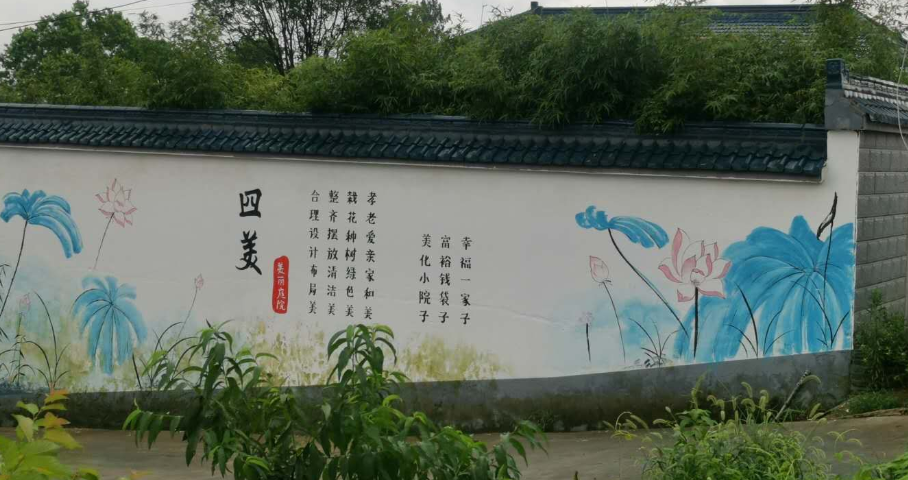 幸福一家子
富裕钱袋子
美化小院子
孝老爱亲家和美
栽花种树绿色美
整齐摆放清洁美
合理设计布局美
四美
美丽庭院